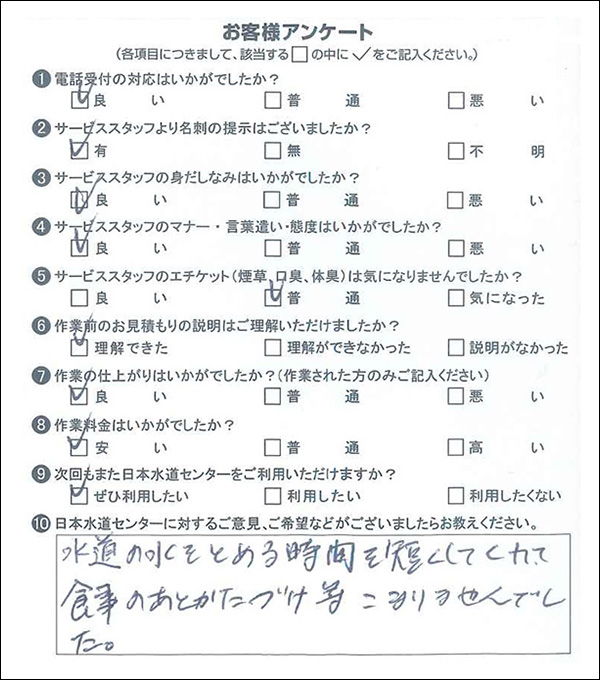 お客様アンケート
(各項目につきまして、該当する□の中に✓をご記入ください。)
❶ 電話受付の対応はいかがでしたか?
☑良い □普通 □悪い
❷ サービススタッフより名刺の提示はございましたか?
☑有 □無 □不明
❸ サービススタッフの身だしなみはいかがでしたか?
☑良い □普通 □悪い
❹ サービススタッフのマナー・言葉遣い・態度はいかがでしたか?
☑良い □普通 □悪い
❺ サービススタッフのエチケット(煙草、口臭、体臭)は気になりませんでしたか?
□良い ☑普通 □気になった
❻ 作業前のお見積もりの説明はご理解いただけましたか?
☑理解できた □理解ができなかった □説明がなかった
❼ 作業の仕上がりはいかがでしたか?(作業された方のみご記入ください)
☑良い □普通 □悪い
❽ 作業料金はいかがでしたか?
☑安い □普通 □高い
❾ 次回もまた日本水道センターをご利用いただけますか?
☑ぜひ利用したい □利用したい □利用したくない
❿ 日本水道センターに対するご意見、ご希望などがございましたらお教えください。
水道の水をとめる時間を短くしてくれて
食事のあとかたづけ等こまりませんでし
た。